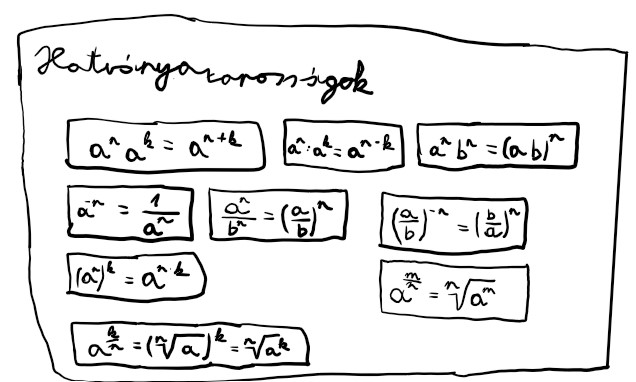 Hatványazonosságok
aⁿ aᵏ = aⁿ⁺ᵏ
aⁿ : aᵏ = aⁿ⁻ᵏ
aⁿ bⁿ = (ab)ⁿ
a⁻ⁿ = 1/aⁿ
aⁿ/bⁿ = (a/b)ⁿ
(a/b)⁻ⁿ = (b/a)ⁿ
(aⁿ)ᵏ = aⁿ·ᵏ
a^(m/n) = ⁿ√(aᵐ)
a^(k/n) = (ⁿ√a)ᵏ = ⁿ√(aᵏ)